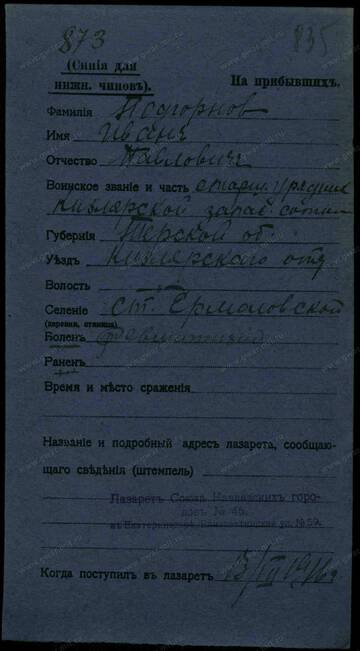 873 835
(Синія для
нижн. чиновъ). На прибывшихъ.
Фамилія Подгорновъ
Имя Иванъ
Отчество Павловичъ
Воинское званіе и часть старш. урядник
Кизлярской сотни
Губернія Терской об.
Уѣздъ Кизлярского отд
Волость
Селеніе ст. Ермоловской
(деревня, станица)
Боленъ
Раненъ
Время и мѣсто сраженія
Названіе и подробный адресъ лазарета, сообщаю-
щаго свѣдѣнія (штемпель)
Лазаретъ Союза горо-
довъ № 46.
ул. № 59.
Когда поступилъ въ лазаретъ 1916 г